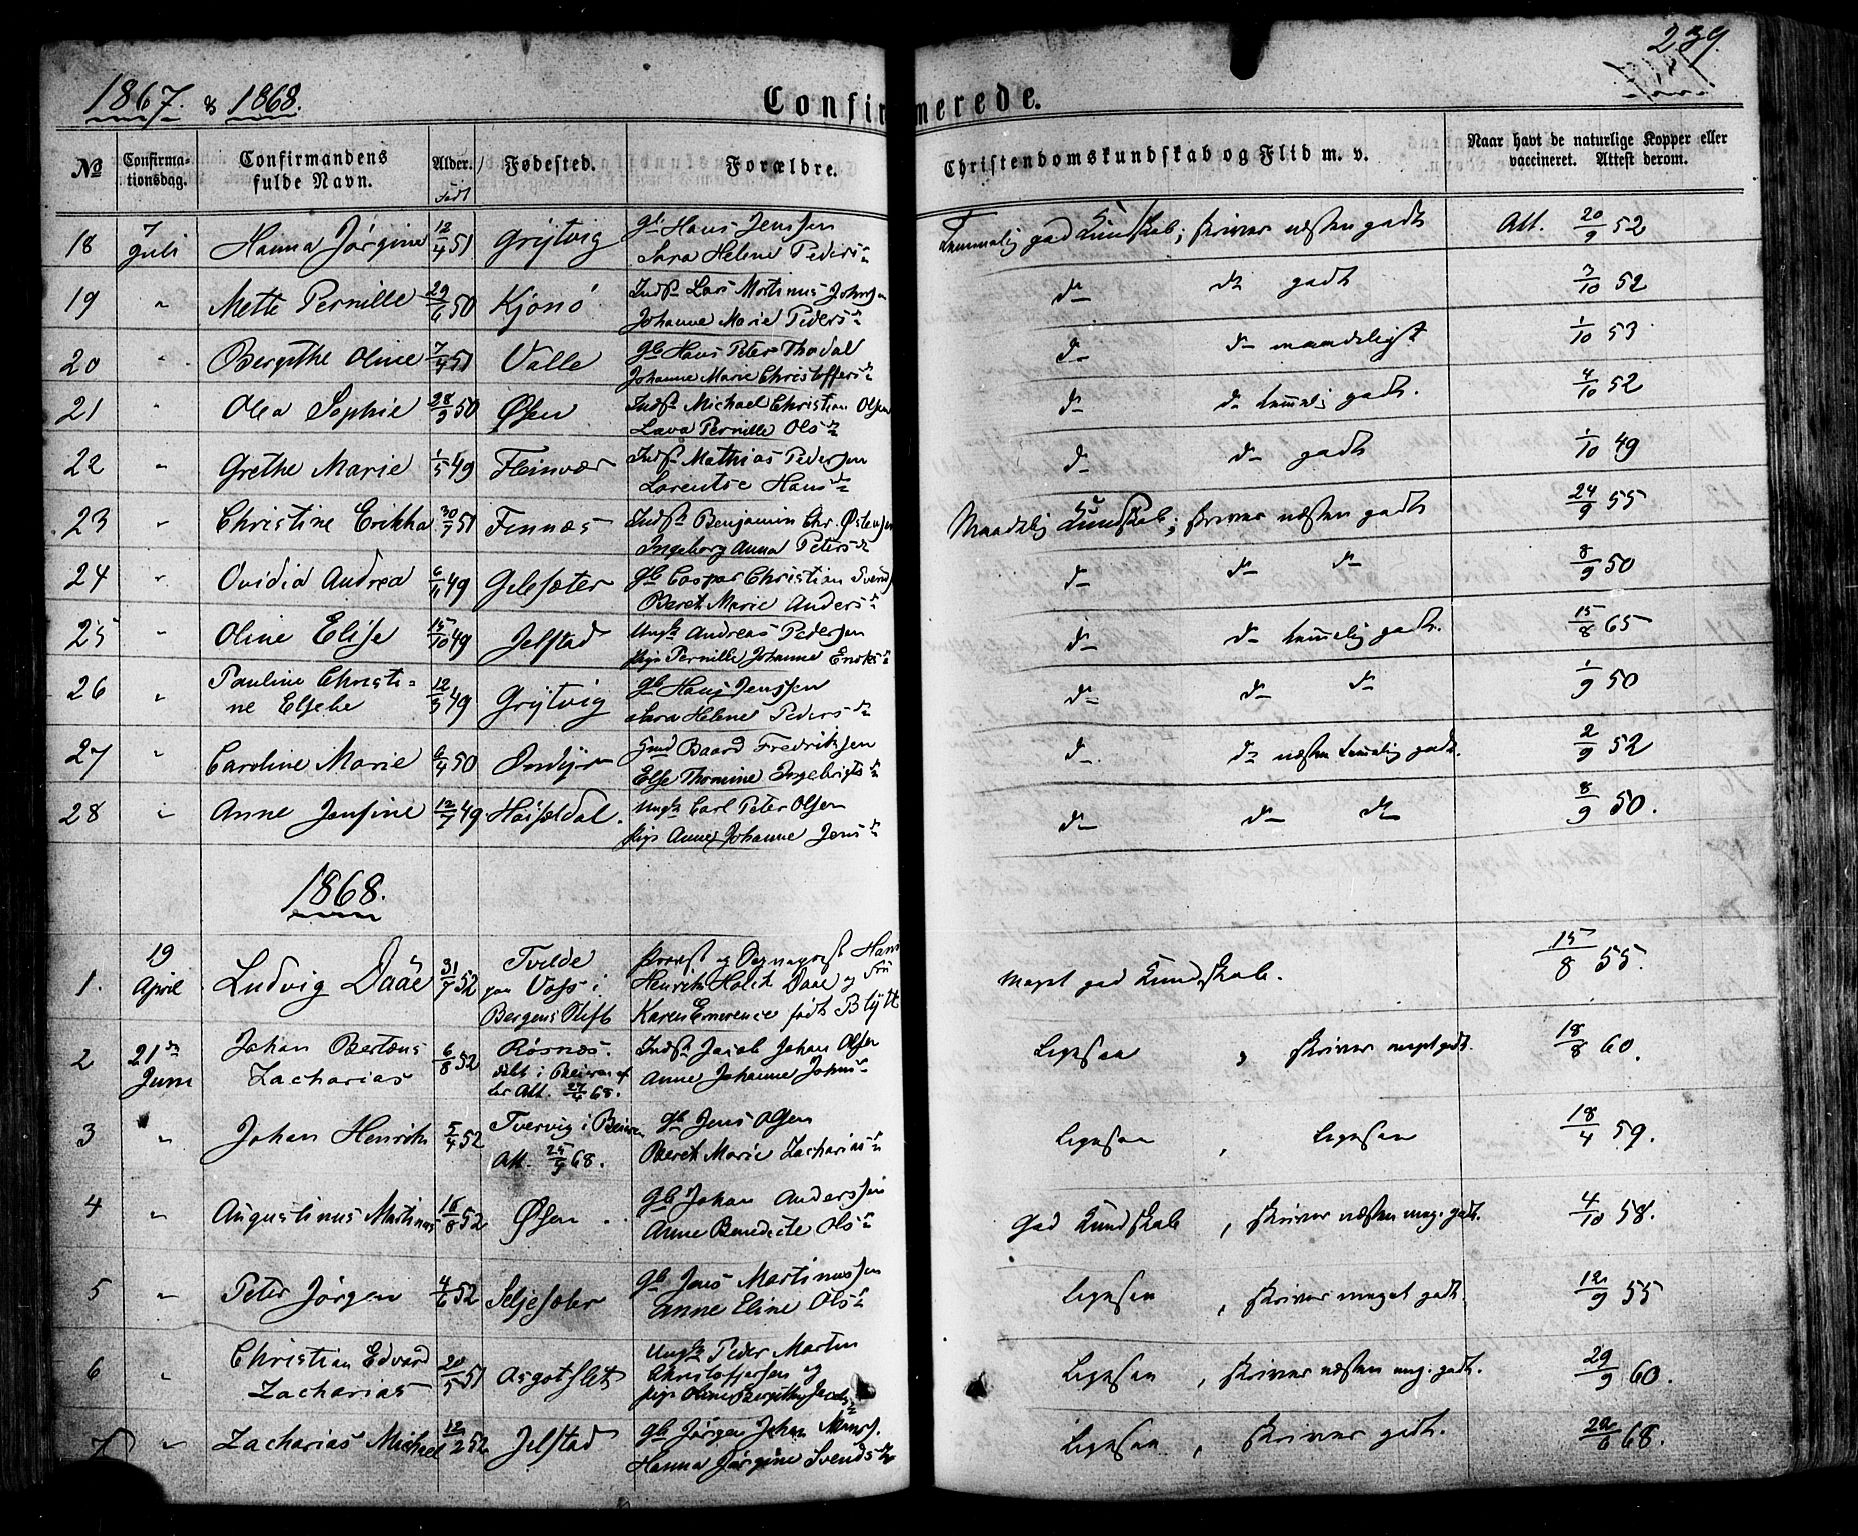 239.
1867. & 1868.
Confirmerede.
No
Confirma-
tionsdag.
Confirmandens
fulde Navn.
Alder.
Født
Fødested.
Forældre.
Christendomskundskab og Flid m. v.
Naar havt de naturlige Kopper eller
vaccineret. Attest derom.
18 7 Juli Hanna Jørgine 12/4 51 Grytvig Gb Hans Jenssen
Sara Helene Pedersdr
Temmelig god Kundskab; skriver næsten godt Att. 20/9 52
19 " Mette Pernille 29/6 50 Kjønø Indst Lars Martinus Johnsen
Johanne Marie Pedersdr
do do godt 3/10 52
20 " Bergithe Oline 7/4 51 Valle Gb Hans Peter Thodal
Johanne Marie Christoffersdr
do do maadeligt 1/10 53
21 " Olea Sophie 28/9 50 Øsen Indst Michael Christian Olsen
Lava Pernille Olsdr
do do temmelig godt. 4/10 52
22 " Grethe Marie 1/5 49 Fleinvær Indst Mathias Pedersen
Lorentse Hansdr
do do godt 1/10 49
23 " Christine Erikka 30/7 51 Finnæs Indst Benjamin Chr. Østensen
Ingeborg Anna Petersdr
Maadelig Kundskab; skriver næsten godt 24/9 55
24 " Ovidia Andrea 6/11 49 Gilesæter Gb Caspar Christian Svends
Beret Marie Andersdr
do do do 8/9 50
25 " Oline Elise 15/10 49 Jelstad Ungk Andreas Pedersen
Pige Pernille Johanne Enoksdr
do do temmelig godt. 15/8 65
26 " Pauline Christi=
ne Elsebe 12/3 49 Grytvig Gb Hans Jenssen
Sara Helene Pedersdr
do do do 1/9 50
27 " Caroline Marie 6/4 50 Øndyr Gmd Baard Fredriksen
Else Thomine Ingebrigtsdr
do do næsten temmelig godt. 2/9 52
28 " Anne Jensine 12/7 49 Høiseldal. Ungk Carl Peter Olsen
Pige Anne Johanne Jensdr
do do do 8/9 50.
1868.
1. 19 April Ludvig Daae 31/7 52 Tvilde
paa Voss i
Bergens Stift
Provst og Sognepræst Hans
Henrik Holck Daae og Fru
Karen Emerence født Blytt
Meget god Kundskab. 15/8 55.
2 21de Juni Johan Bertæus
Zacharias 6/8 52 Røsnæs.
døbt i Beiern ef
ter Att. 27/4 68.
Indst Jacob Johan Olsen
Anne Johanne Johnsdr
Ligesaa , skriver meget godt. 18/8 60.
3 " Johan Henrik 5/4 52 Tvervig i Beiern
Att. 25/9 68.
Gb Jens Olsen
Beret Marie Zachariasdr
Ligesaa , Ligesaa 18/4 59.
4 " Augustinus Martinus 16/8 52 Øsen. Gb Johan Anderssen
Anne Benedicte Olsdr
God Kundskab , skriver næsten meg. godt. 4/10 58.
5 " Peter Jørgen 4/6 52 Seljesæter Gb Jens Martinussen
Anne Eline Olsdr
Ligesaa , skriver meget godt. 12/9 55
6 " Christian Edvard
Zacharias 20/5 51 Asgotslet Ungk Peder Martin
Christoffersen og
Pige Oline Bergitte Jacobsdr
Ligesaa , skriver næsten meg. godt. 29/9 60.
7 " Zacharias Michael 12/2 52 Jelstad Gb Jørgen Johan
Hanna Jørgine Svendsdr
Ligesaa , skriver godt. 22/6 68.